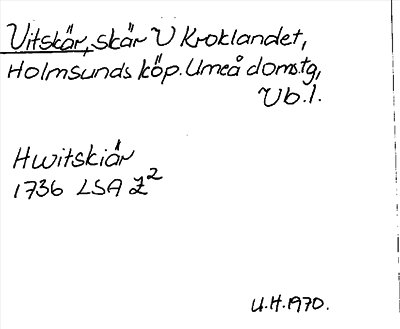 Vitskär, skär V Kroklandet,
Holmsunds köp. Umeå doms.tg,
Vb.l.
Hwitskiär
1736 LSA Z²
U.H.1970.